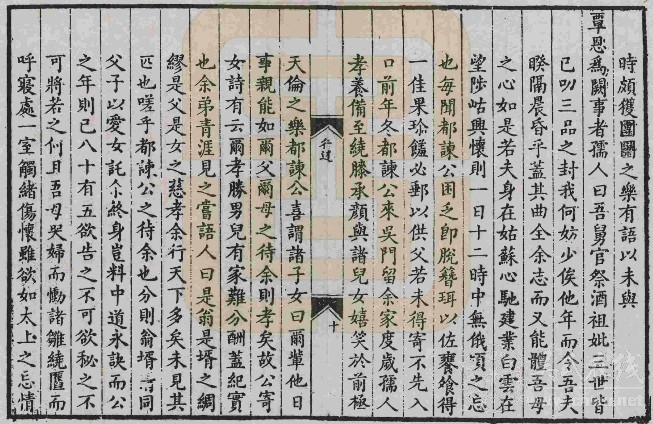 時頗獲團圞之樂有語以未與
覃恩為闕事者孺人曰吾舅官祭酒祖妣二世皆
已叨三品之封我何妨少俟他年而令吾夫
睽隔晨昏乎蓋其曲全余志而又能體吾母
之心如是若夫身在姑蘇心馳建業白雲在
望陟岵興懷則一日十二時中無俄頃之忘
也每聞都諫公困乏卽脫簪珥以佐饔飧得
一佳果珍饈必郵以供父若未得寄不先入
口前年冬都諫公來吳門留余家度歲孺人
孝養備至繞膝承顏與諸兒女嬉笑於前極
十
天倫之樂都諫公喜謂諸子女曰爾輩他日
事親能如爾父爾母之待余則孝矣故公寄
女詩有云爾孝勝男兒有家難分酬蓋紀實
也余弟青涯見之嘗語人曰是翁是壻之綢
繆是父是女之慈孝余行天下多矣未見其
匹也嗟乎都諫公之待余也分則翁壻同
父子以愛女託余終身豈料中道永訣而公
之年則已八十有五欲告之不可欲秘之不
可將若之何且吾母哭婦而慟諸雛繞匶而
呼寢處一室觸緒傷懷雖欲如太上之忘情